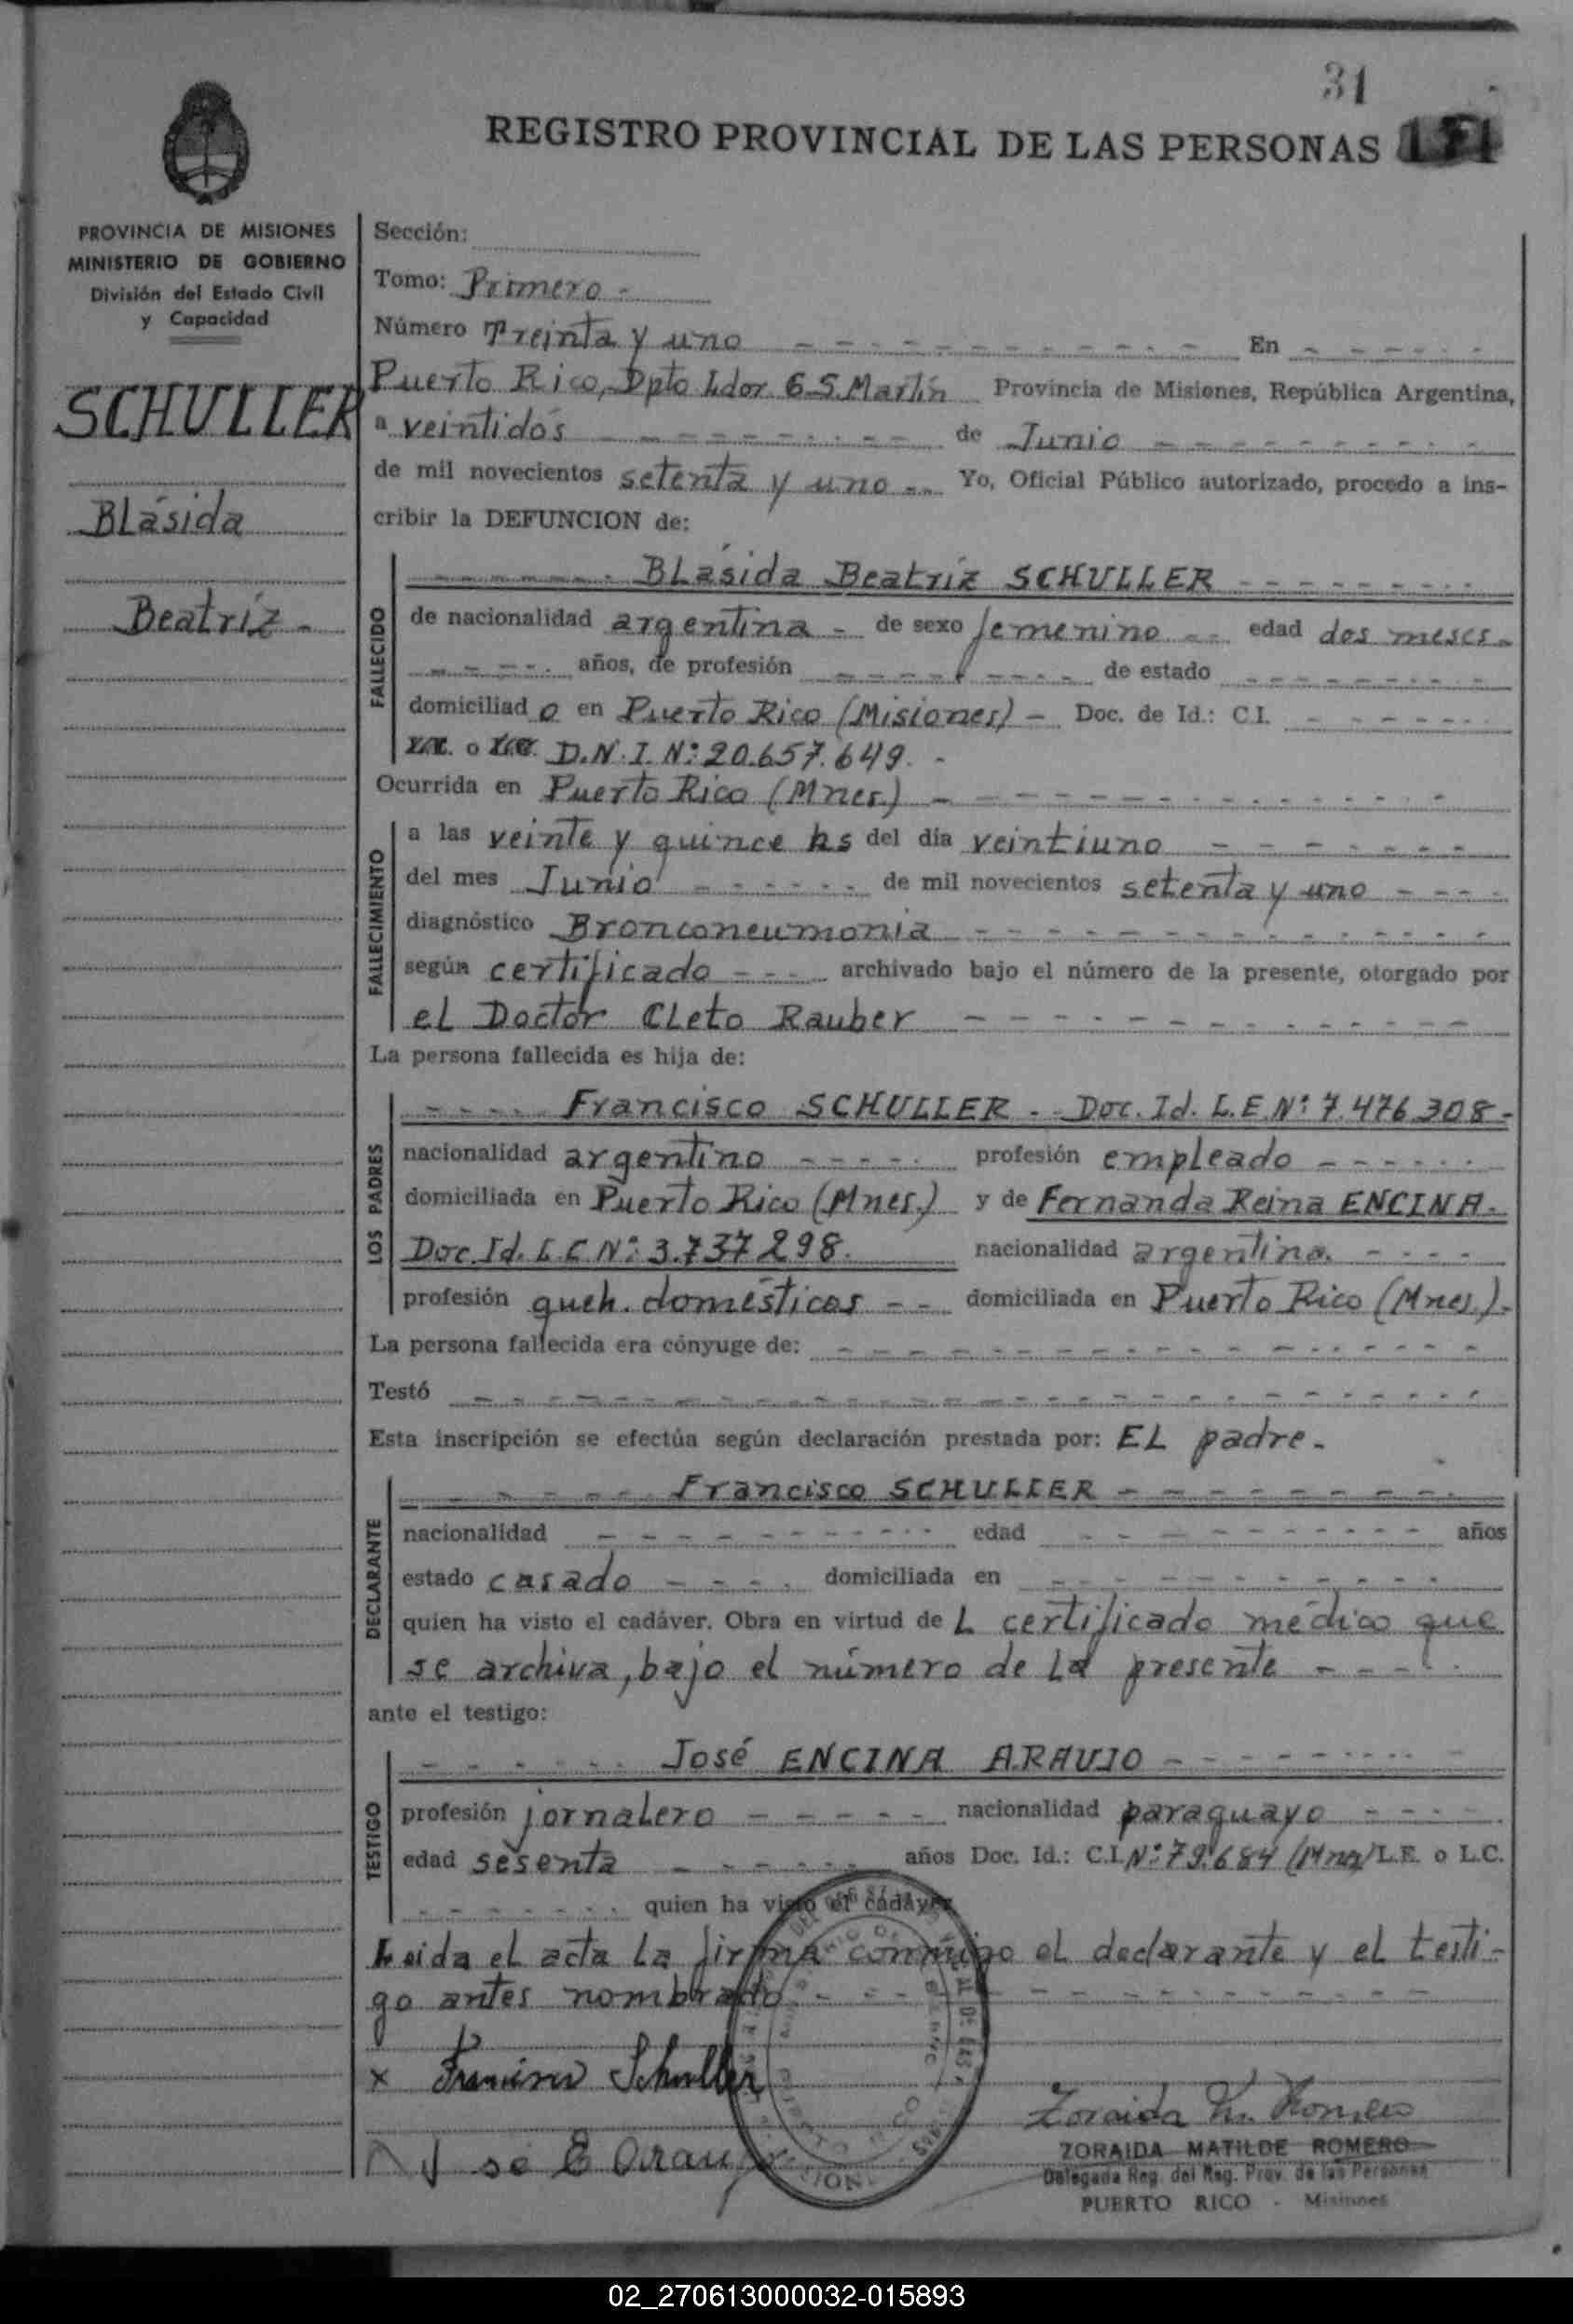 31
REGISTRO PROVINCIAL DE LAS PERSONAS
PROVINCIA DE MISIONES
MINISTERIO DE GOBIERNO
División del Estado Civil
y Capacidad
SCHULLER
Blásida
Beatríz -
Sección:
Tomo: Primero -
Número Treinta y uno - - - - - - - - - - En - - - - -
Puerto Rico, Dpto Ldor. G. S. Martín Provincia de Misiones, República Argentina,
a veintidós - - - - - - - - de Junio - - - - - - - -
de mil novecientos setenta y uno -- Yo, Oficial Público autorizado, procedo a ins-
cribir la DEFUNCION de:
FALLECIDO
- - - - - - Blásida Beatríz SCHULLER - - - - - - - -
de nacionalidad argentina - de sexo femenino -- edad dos meses -
- - - - años, de profesión - - - - - - - - de estado - - - - - - - -
domiciliado en Puerto Rico (Misiones) - Doc. de Id.: C.I. - - - - - -
o D.N.I. Nº: 20.657.649. -
Ocurrida en Puerto Rico (Mnes.) - - - - - - - - - - - -
FALLECIMIENTO
a las veinte y quince hs del día veintiuno - - - - - - -
del mes Junio - - - - - - de mil novecientos setenta y uno - - - -
diagnóstico Bronconeumonia - - - - - - - - - - - -
según certificado - - - archivado bajo el número de la presente, otorgado por
el Doctor Cleto Rauber - - - - - - - - - - - -
La persona fallecida es hija de:
LOS PADRES
- - - - Francisco SCHULLER - - Doc. Id. L.E. Nº: 7.476.308 -
nacionalidad argentino - - - - - profesión empleado - - - - - -
domiciliada en Puerto Rico (Mnes.) y de Fernanda Reina ENCINA.
Doc. Id. L.C. Nº: 3.737.298. nacionalidad argentina. - - - -
profesión queh. domésticos - - domiciliada en Puerto Rico (Mnes.). -
La persona fallecida era cónyuge de: - - - - - - - - - - - -
Testó - - - - - - - - - - - - - - - - - -
Esta inscripción se efectúa según declaración prestada por: El padre. -
DECLARANTE
- - - - - Francisco SCHULLER - - - - - - - -
nacionalidad - - - - - - - - - - edad - - - - - - - - - - años
estado casado - - - - domiciliada en - - - - - - - - - -
quien ha visto el cadáver. Obra en virtud de l certificado médico que
se archiva, bajo el número de la presente - - - - -
ante el testigo:
TESTIGO
- - - - - - José ENCINA ARAUJO - - - - - - - - -
profesión jornalero - - - - - nacionalidad paraguayo - - - -
edad sesenta - - - - - - años Doc. Id.: C.I. Nº: 79.684 (Mnes) L.E. o L.C.
- - - - - - quien ha visto el cadáver
Leida el acta la firma conmigo el declarante y el testi-
go antes nombrado - - - - - - - - - - - -
x Francisco Schuller
José E Arauj
Zoraida M. Romero
ZORAIDA MATILDE ROMERO
Delegada Reg. del Reg. Prov. de las Personas
PUERTO RICO - Misiones
02_270613000032-015893